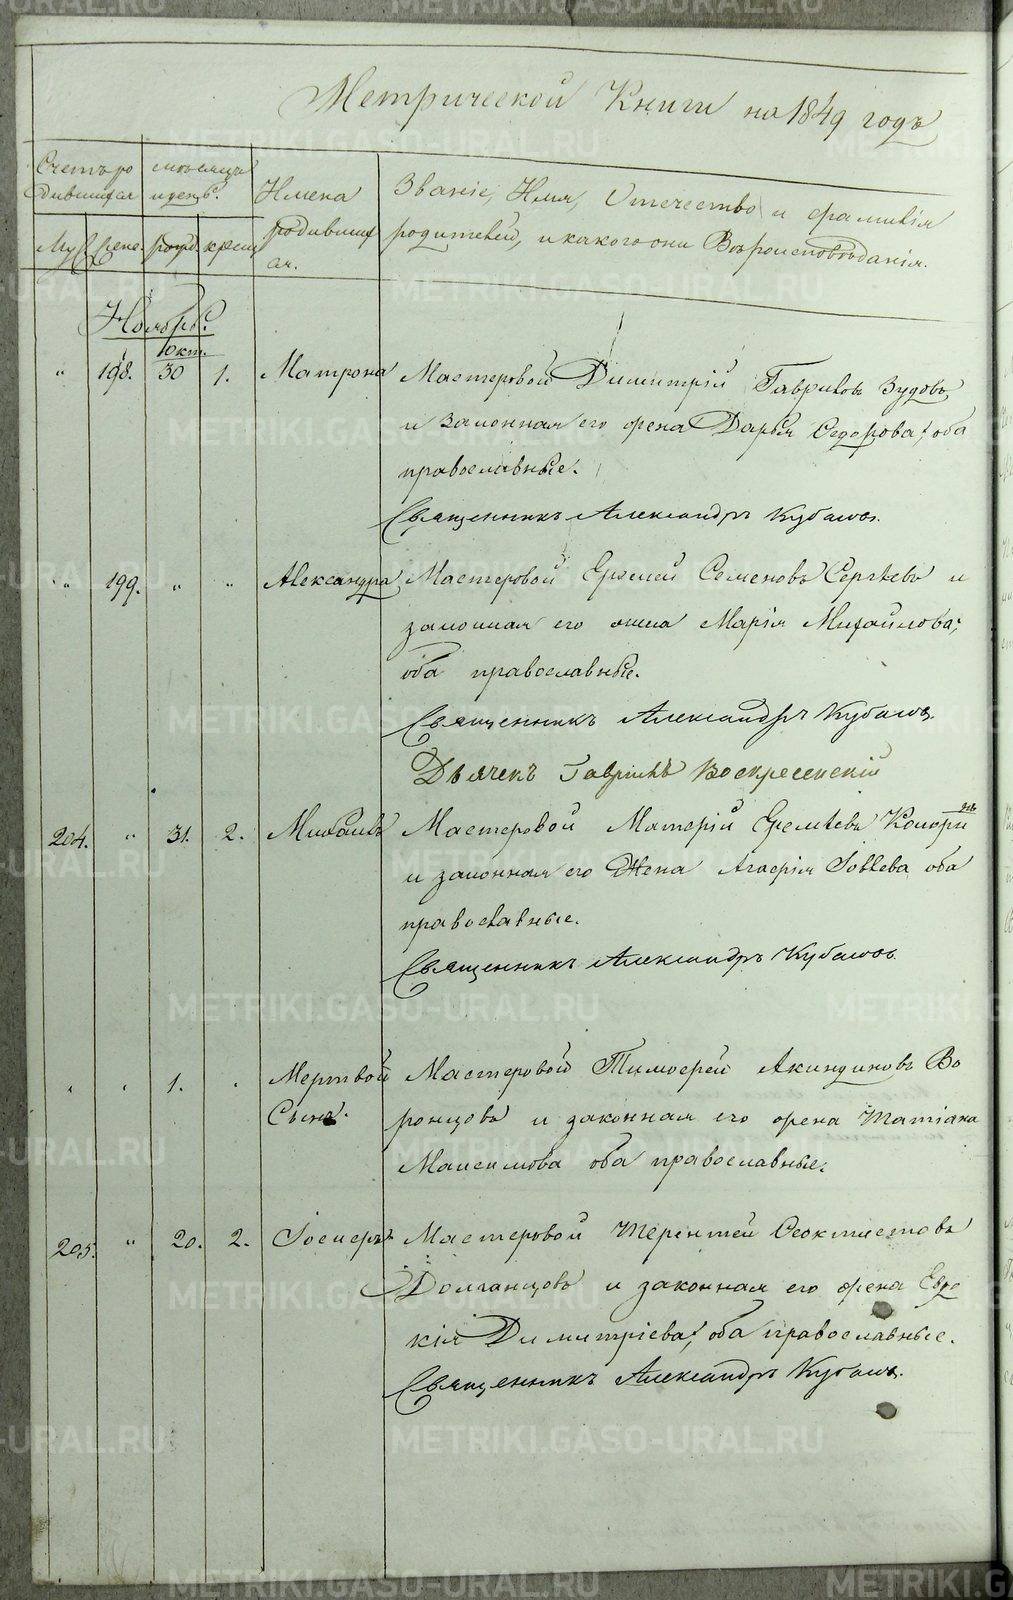 Метрической Книги на 1849 годъ
Счетъ ро
дившихся
мѣсяцъ
и день.
Имена
родивших
ся.
Званіе, Имя, Отечество и фамилія
родителей, и какого они Вѣроисповѣданія.
Муж. Жено. рожд. крещ.
Ноябрь.
Окт.
" 198. 30 1. Матрона Мастеровой Димитрій Гавриловъ Зудовъ,
и законная его жена Дарья Федорова, оба
православные.
Священникъ Александръ Кубасовъ.
" 199. " " Александра Мастеровой Еремей Семеновъ Сергѣевъ и
законная его жена Марія Михайлова;
оба православные.
Священникъ Александръ Кубасовъ.
Дьячекъ Гавріилъ Воскресенскій
204. " 31. 2. Михаилъ Мастеровой Еремѣевъ
и законная его Жена Агафія Іовлева оба
православные.
Священникъ Александръ Кубасовъ
" " 1. " Мертвой Мастеровой Тимофей Акиндиновъ Во
Сынъ. ронцовъ и законная его жена Татіана
Максимова оба православные.
205. " 20. 2. Іосифъ Мастеровой Терентей Феоктистовъ
Долганцовъ и законная его жена Евдо
кія Димитріева, оба православные.
Священникъ Александръ Кубасовъ.
METRIKI.GASO-URAL.RU